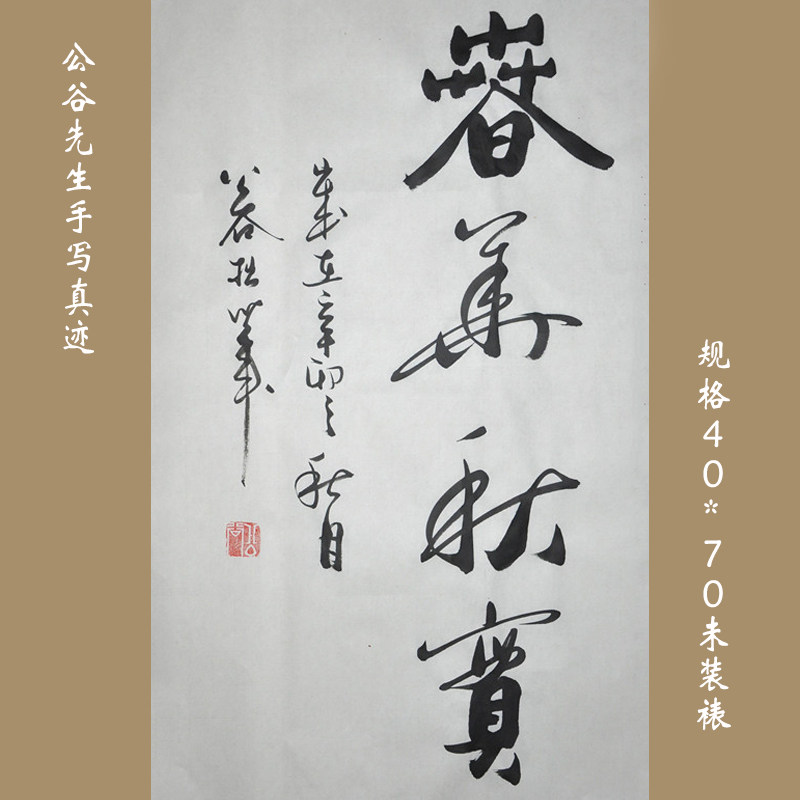 规格40*70未装裱
春華秋實
歲在辛卯之秋月
公谷拙筆
公谷先生手写真迹